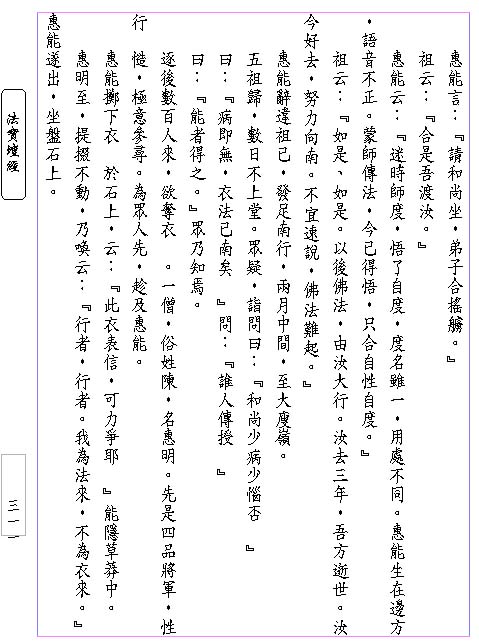 惠能言：『請和尚坐，弟子合搖艣。』
祖云：『合是吾渡汝。』
惠能云：『迷時師度，悟了自度，度名雖一，用處不同。惠能生在邊方
，語音不正。蒙師傳法，今已得悟，只合自性自度。』
祖云：『如是、如是。以後佛法，由汝大行。汝去三年，吾方逝世。汝
今好去，努力向南。不宜速說，佛法難起。』
惠能辭違祖已，發足南行，兩月中間，至大庾嶺。
五祖歸，數日不上堂。眾疑，詣問曰：『和尚少病少惱否　』
曰：『病即無，衣法已南矣　』問：『誰人傳授　』
曰：『能者得之。』眾乃知焉。
逐後數百人來，欲奪衣　。一僧，俗姓陳，名惠明。先是四品將軍，性
行　慥，極意參尋。為眾人先，趁及惠能。
惠能擲下衣　於石上，云：『此衣表信，可力爭耶　』能隱草莽中。
惠明至，提掇不動，乃喚云：『行者，行者。我為法來，不為衣來。』
惠能遂出，坐盤石上。
法寶壇經
三一一